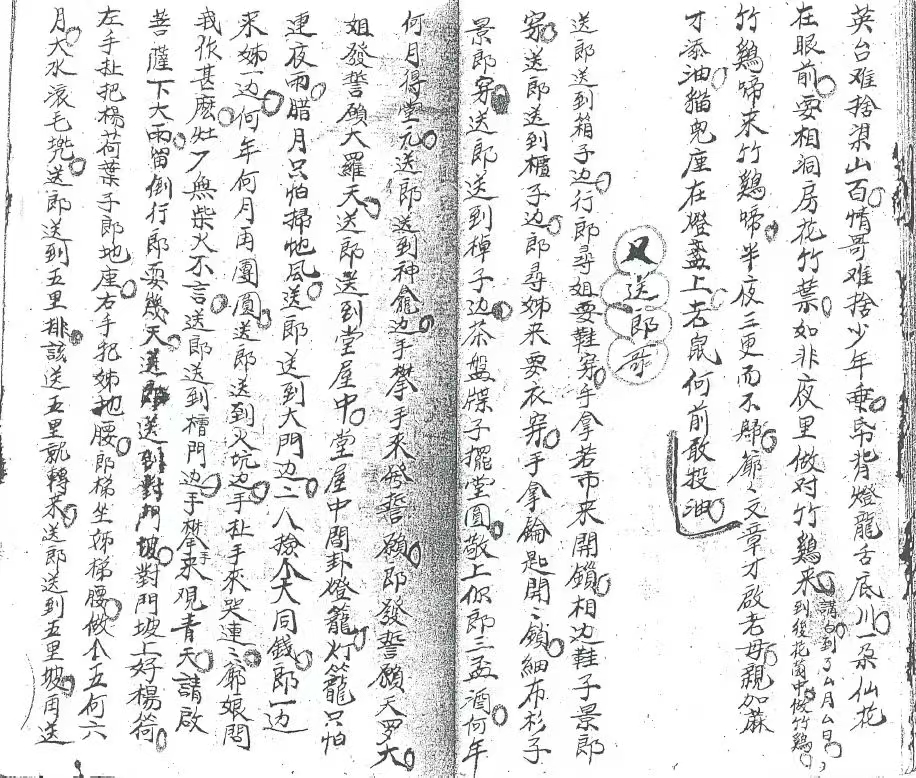 英台难捨梁山百情哥难捨少年乗帋背燈龍舌底川一朶仙花
在眼前要相洞房花竹葉如非夜里做对竹鷄来
講白到了厶月厶日
到後花园中悦竹鷄
竹鷄啼来竹鷄啼半夜三更而不歸爺々文章才啟老母親加蔴
才添油貓兒座在燈盞上老鼠何前敢投油
又送郎哥
送郎送到箱子边行郎尋姐要鞋穿手拿若市来開鎖相边鞋子景郎
穿送郎送到櫃子边郎尋姊来要衣穿手拿鑰匙開々鎖細布衫子
景郎穿送郎送到棹子边茶盤碟子擺堂圓敬上你郎三盃酒何年
何月得堂元送郎送到神龕边手攀手来發誓願郎發誓願天罗大
姐發誓願大羅天送郎送到堂屋中堂屋中間卦燈籠灯籠只怕
連夜雨腊月只怕掃地風送郎送到大門边二八撿个大同錢郎一边
来姊一边何年何月再團圓送郎送到火坑边手扯手来哭連々爺娘問
我作甚麽灶又無柴火不言送郎送到槽門边手攀手来观青天請啟
菩薩下大雨留倒行郎耍幾天送郎送到對門坡對門坡上好楊荷
左手扯把楊荷葉手郎地座右手把姊抱腰郎梯坐姊梯腰做个五何六
月大水滚毛兠送郎送到五里排該送五里就轉来送郎送到五里坡再送